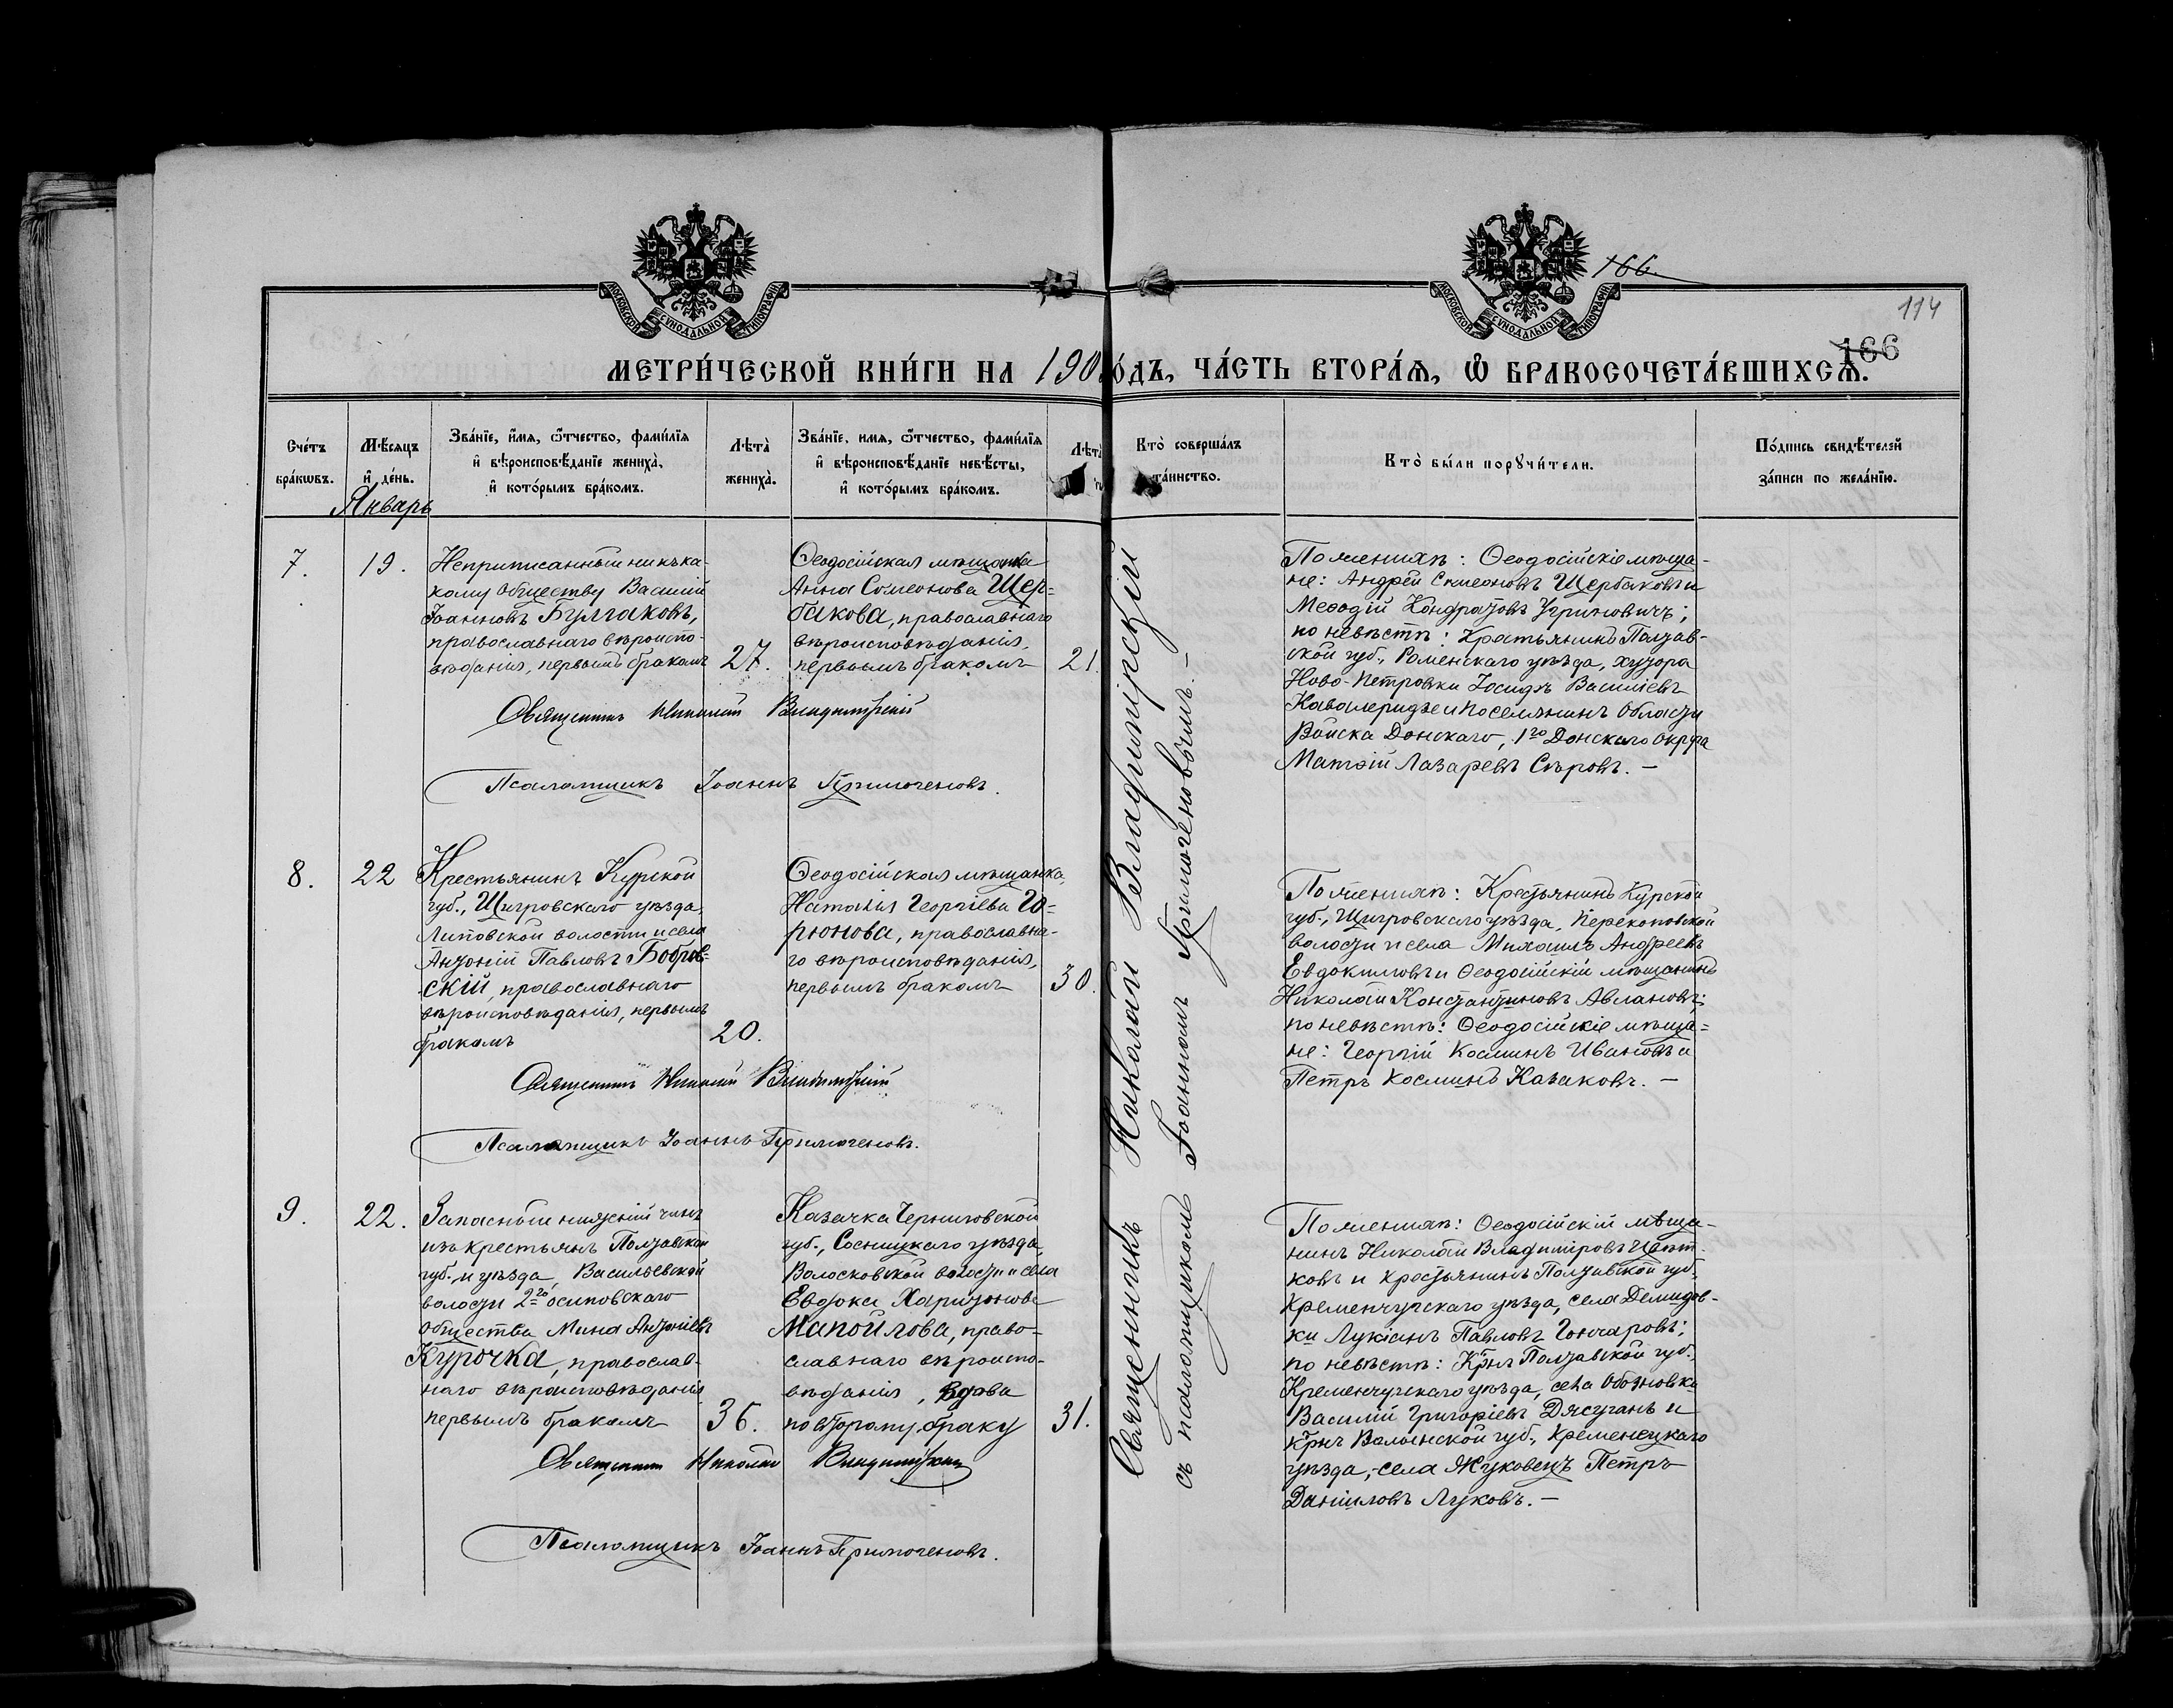 166.
114
166
МОСКОВСКОЙ СУНОДАЛЬНОЙ ТИПОГРАФІИ
МОСКОВСКОЙ СУНОДАЛЬНОЙ ТИПОГРАФІИ
МЕТРИ́ЧЕСКОЙ КНИ́ГИ НА 190 ОДЪ, ЧА́СТЬ ВТОРА́Я, Ѡ БРАКОСОЧЕТА́ВШИХСЯ.
Сче́тъ бра́кѡвъ.
Мѣ́сяцъ и де́нь.
Зва́нїе, и́мя, ѻ́тчество, фами́лїя и вѣроисповѣ́данїе жениха̀, и кото́рымъ бра́комъ.
Лѣта̀ жениха̀.
Зва́нїе, имя, ѻ́тчество, фами́лїя и вѣроисповѣ́данїе невѣ́сты, и кото́рымъ бра́комъ.
Лѣта̀
Кто̀ соверша́лъ та́инство.
Кто̀ бы́ли порꙋчи́тели.
По́дпись свидѣ́телей за́писи по жела́нїю.
Январь
7.
19.
Неприписанный ни къ ка-
кому обществу Василій
Іоанновъ Булгаковъ,
православнаго вѣроиспо-
вѣданія, первымъ бракомъ
27.
Ѳеодосійская мѣщанка
Анна Симеонова Щер=
бакова, православнаго
вѣроисповѣданія,
первымъ бракомъ
21.
Священникъ Николай Владимірскій
Псаломщикъ Іоаннъ Примоченовъ.
По женихѣ: Ѳеодосійскіе мѣща-
не: Андрей Симеоновъ Щербаковъ и
Меѳодій Кондратовъ Угриновичъ;
по невѣстѣ: Крестьянинъ Полтав-
ской губ., Роменскаго уѣзда, хутора
Ново-Петровки Іосифъ Василіевъ
Кавалеридзе и поселянинъ Области
Войска Донскаго, 1го Донскаго округа
Матѳій Лазаревъ Сѣровъ. —
8.
22
Крестьянинъ Курской
губ., Щигровскаго уѣзда,
Липовской волости и села
Антоній Павловъ Бобров=
скій, православнаго
вѣроисповѣданія, первымъ
бракомъ
20.
Ѳеодосійская мѣщанка,
Наталія Георгіева Го=
рюнова, православна-
го вѣроисповѣданія,
первымъ бракомъ
30.
Священникъ Николай Владимірскій
Псаломщикъ Іоаннъ Примоченовъ.
По женихѣ: Крестьянинъ Курской
губ., Щигровскаго уѣзда, Перекоповской
волости и села Михаилъ Андреевъ
Евдокимовъ и Ѳеодосійскій мѣщанинъ
Николай Константиновъ Авлановъ;
по невѣстѣ: Ѳеодосійскіе мѣща=
не: Георгій Косминъ Ивановъ и
Петръ Косминъ Казаковъ. —
9.
22.
Запасный нижній чинъ
изъ крестьянъ Полтавской
губ. и уѣзда, Васильевской
волости 2го осиповскаго
общества Мина Антоніевъ
Курочка, православ-
наго вѣроисповѣданія
первымъ бракомъ
36.
Казачка Черниговской
губ., Сосницкаго уѣзда,
Волосковской волости и села
Евдокія Харитонова
Мапойлова, право-
славнаго вѣроиспо-
вѣданія, вдова
по второму браку
31.
Священникъ Николай Владимірскій
Псаломщикъ Іоаннъ Примоченовъ.
По женихѣ: Ѳеодосійскій мѣща-
нинъ Николай Владиміровъ Цвѣт-
ковъ и крестьянинъ Полтавской губ.
Кременчугскаго уѣзда, села Демидов-
ки Лукіанъ Павловъ Гончаровъ;
по невѣстѣ: Крнъ Полтавской губ.,
Кременчугскаго уѣзда, села Обозновки
Василій Григоріевъ Дясуганъ и
крнъ Волынской губ., Кременецкаго
уѣзда, села Жуковецъ Петръ
Даніиловъ Луковъ. —
Священникъ Николай Владимірскій
съ псаломщикомъ Іоанномъ Примоченовымъ. —